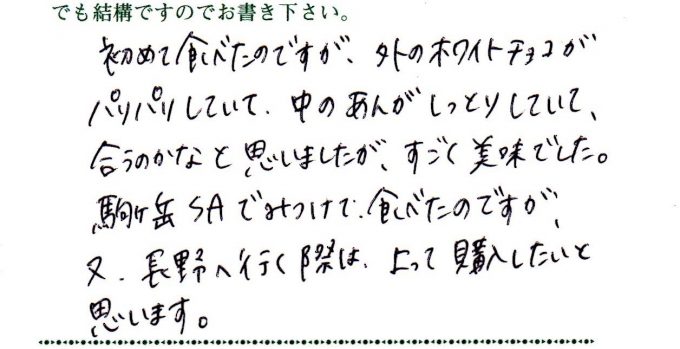 でも結構ですのでお書き下さい。
初めて食べたのですが、外のホワイトチョコが
パリパリしていて、中のあんがしっとりしていて、
合うのかなと思いましたが、すごく美味でした。
駒ヶ岳SAでみつけて、食べたのですが、
又、長野へ行く際は、よって購入したいと
思います。